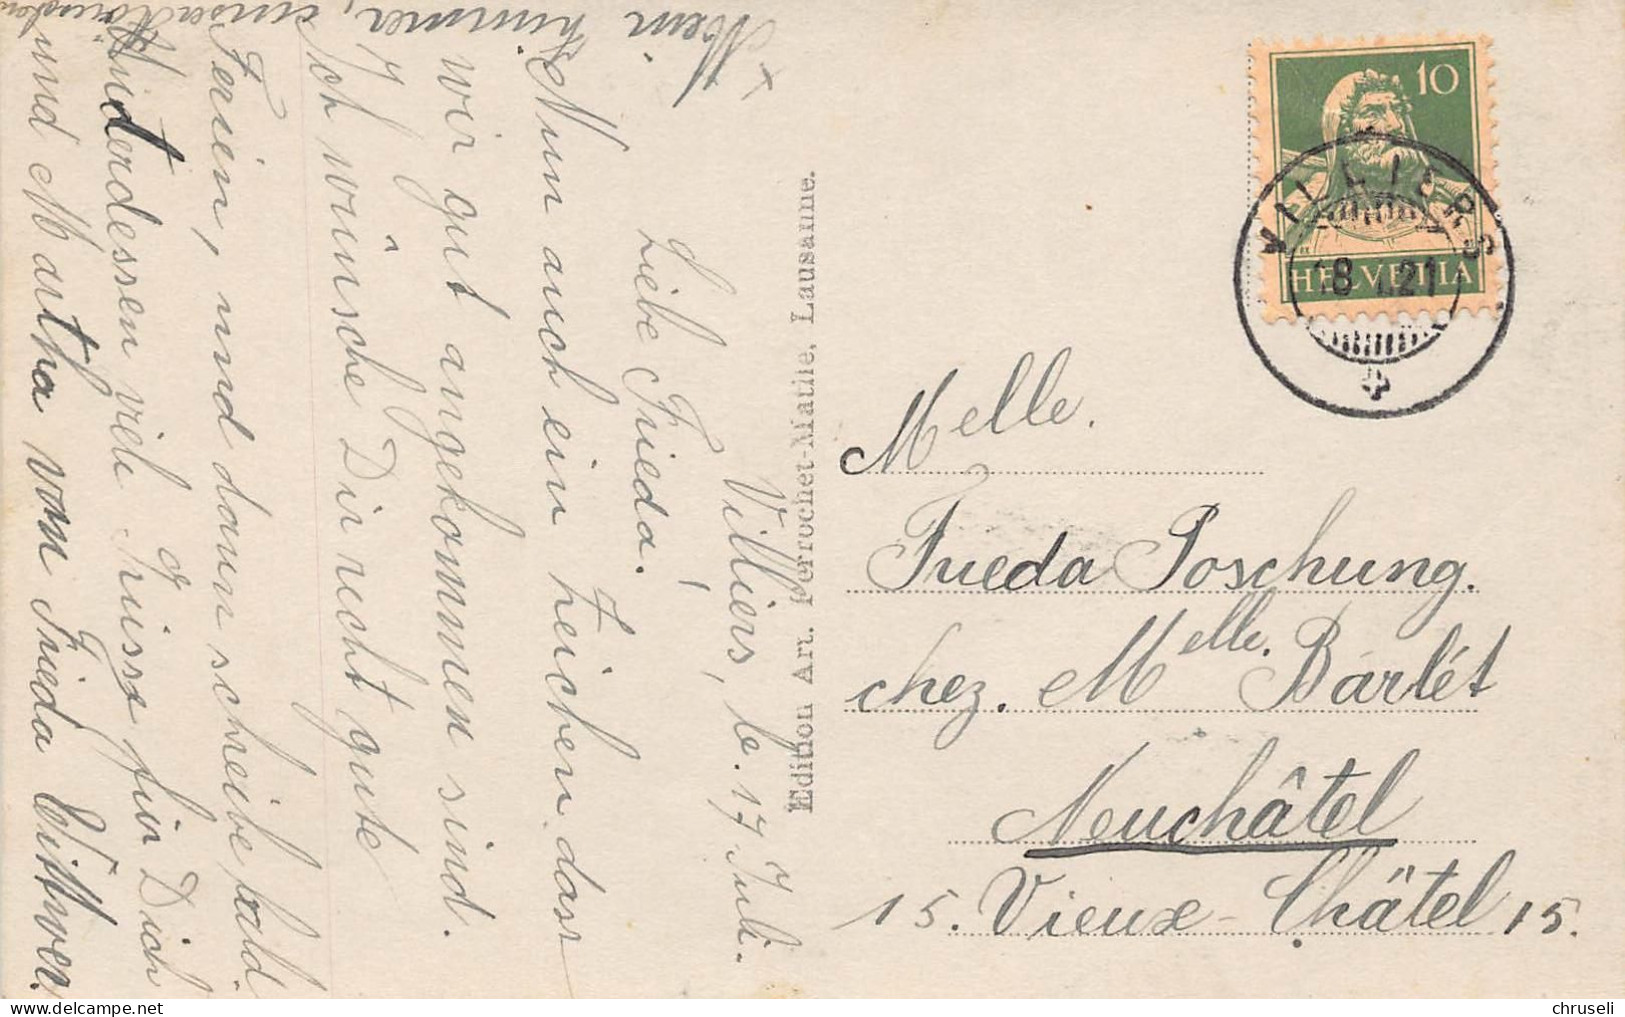 Villiers, le. 17 Juli.
Liebe Frieda!
Nun auch ein Zeichen dass
wir gut angekommen sind.
Ich wünsche Dir recht gute
Ferien, und dann schreibe bald.
Unterdessen viele Grüsse für Dich
und Martha von Frieda Wittwer.
Mein Zimmer,
Edition Art. Perrochet-Matile, Lausanne.
10
HELVETIA
VILLIERS
18 21
Melle.
Frieda Poschung.
chez. Melle. Barlét
Neuchâtel
15. Vieux-Châtel 15.
chruseli